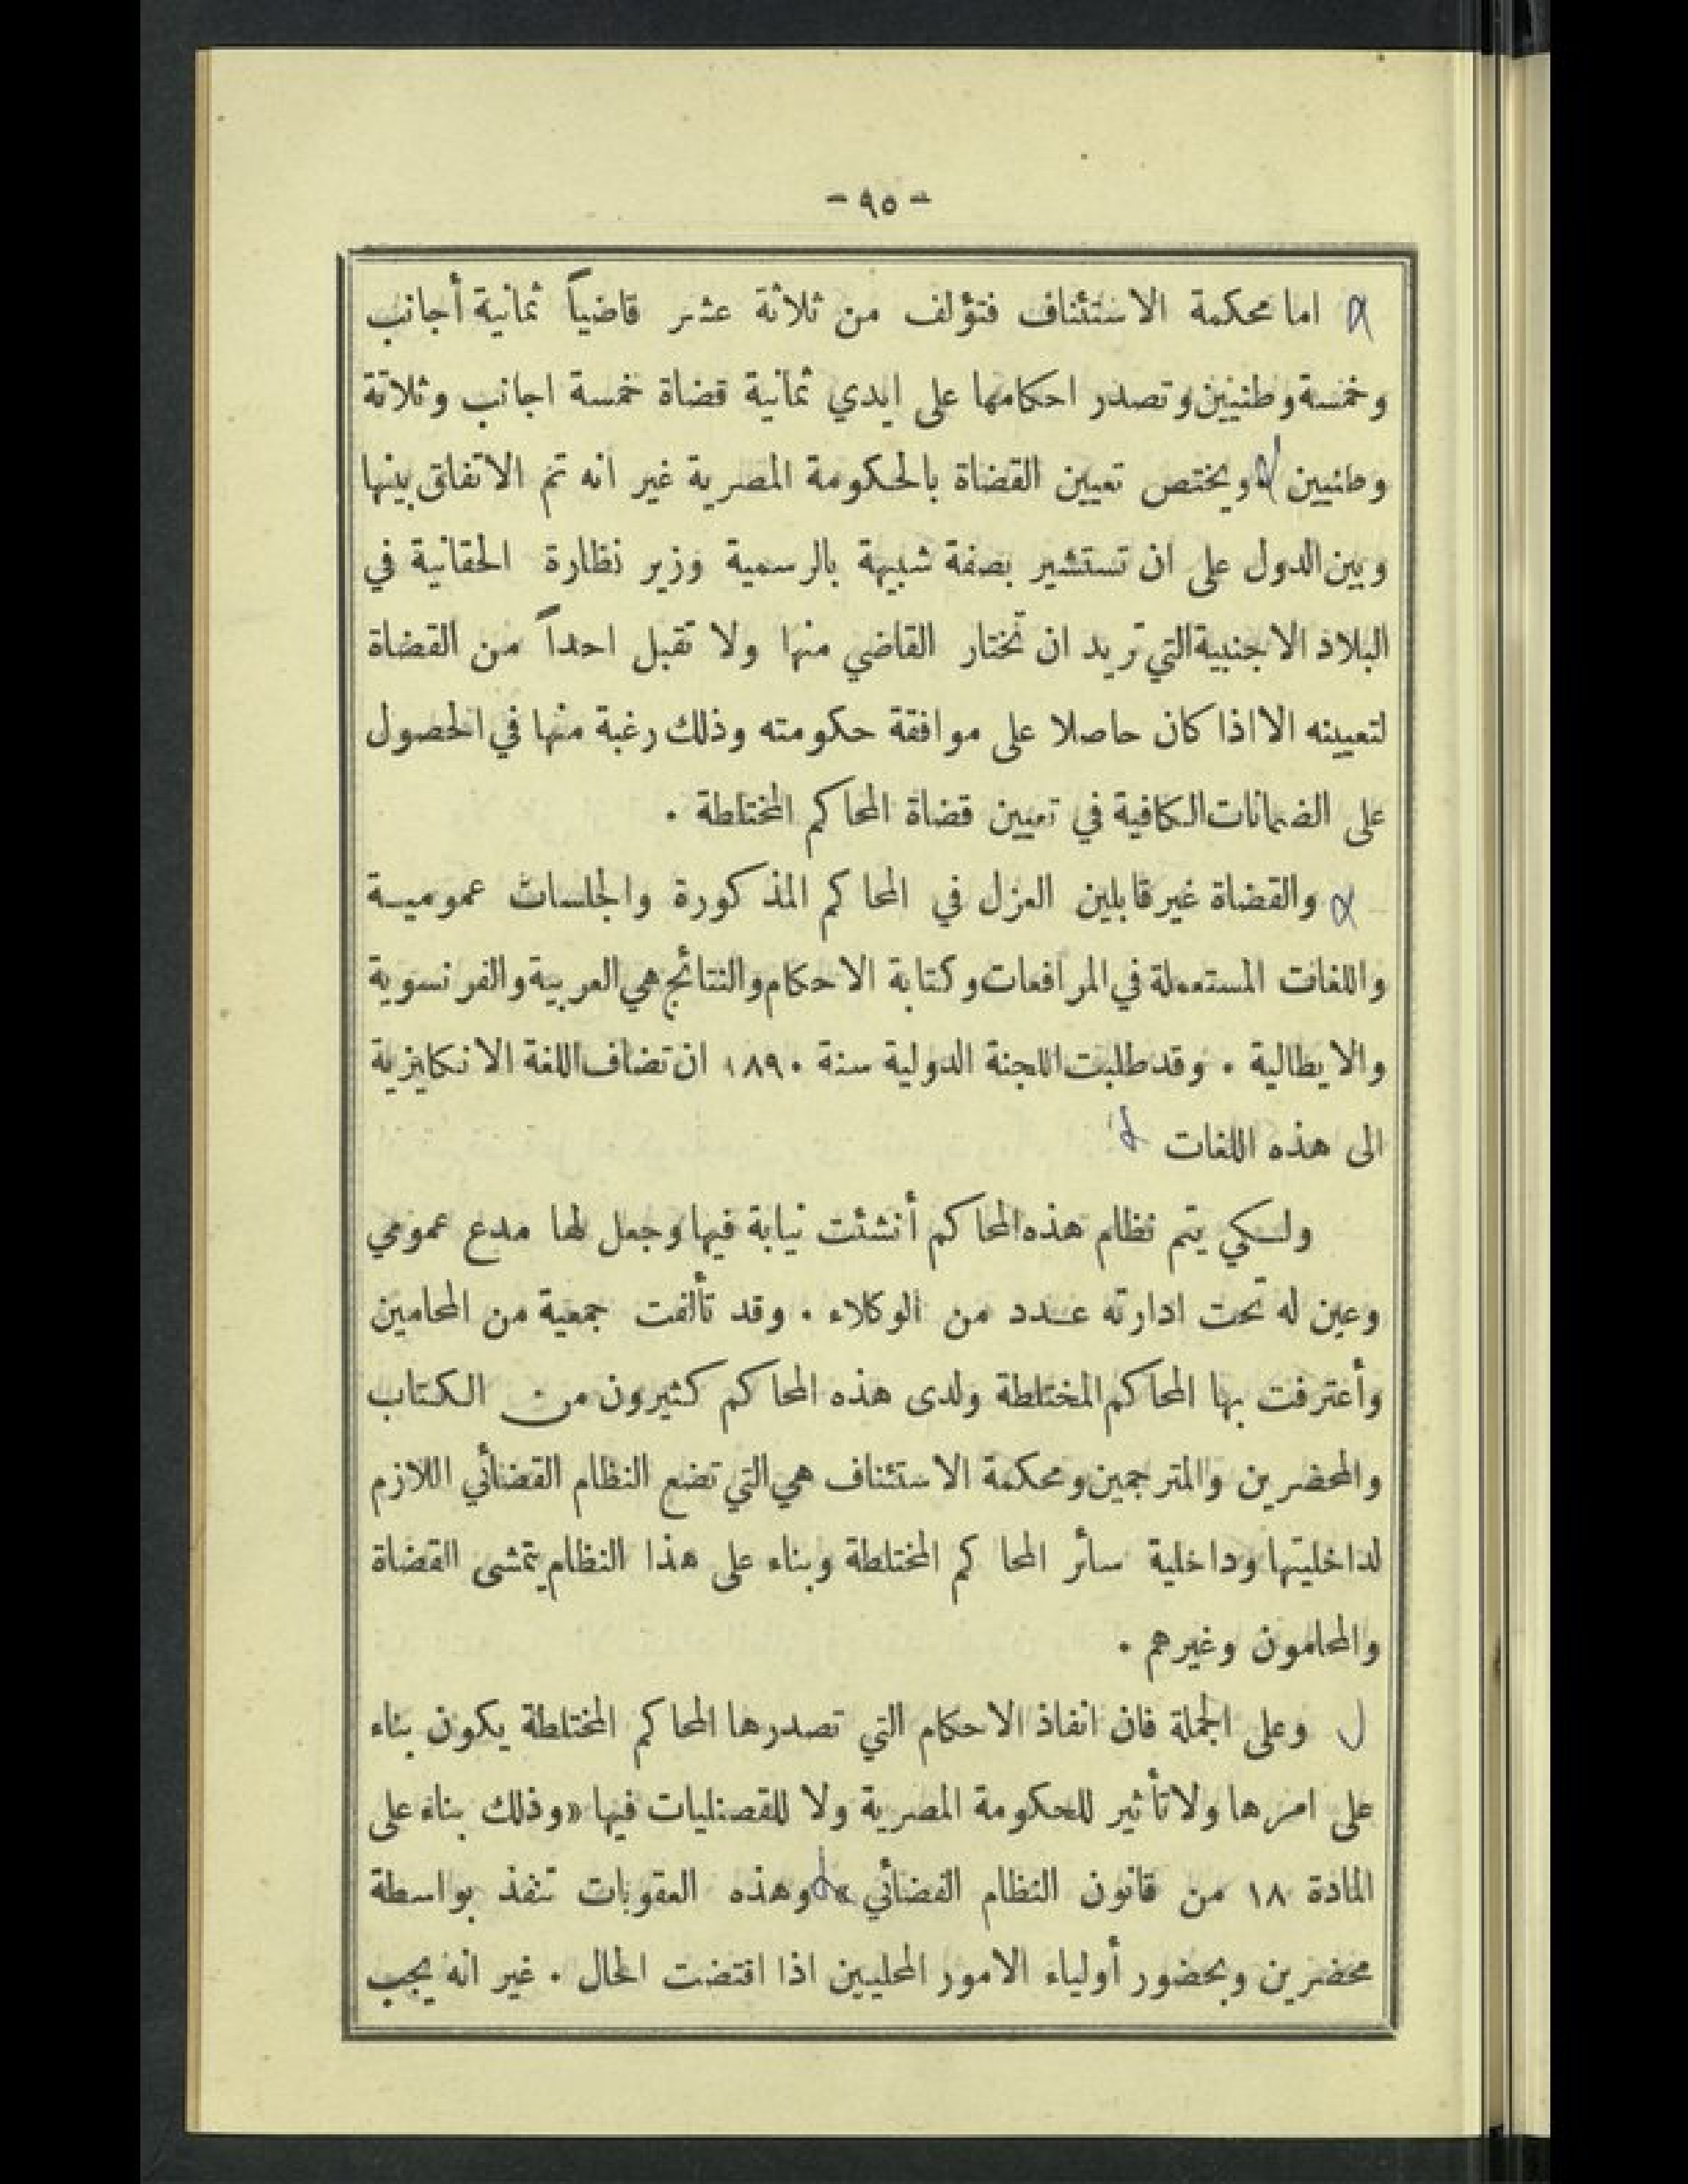 - ٩٥ -
اما محكمة الاستئناف فتؤلف من ثلاثة عشر قاضياً ثمانية أجانب
وخمسة وطنيين وتصدر احكامها على ايدي ثمانية قضاة خمسة اجانب وثلاثة
وطنيين ويختص تعيين القضاة بالحكومة المصرية غير انه تم الاتفاق بينها
وبين الدول على ان تستشير بصفة شبيهة بالرسمية وزير نظارة الحقانية في
البلاد الاجنبية التي تريد ان تختار القاضي منها ولا تقبل احداً من القضاة
لتعيينه الا اذا كان حاصلا على موافقة حكومته وذلك رغبة منها في الحصول
على الضمانات الكافية في تعيين قضاة المحاكم المختلطة .
والقضاة غير قابلين العزل في المحاكم المذكورة والجلسات عمومية
واللغات المستعملة في المرافعات وكتابة الاحكام والنتائج هي العربية والفرنسوية
والايطالية . وقد طلبت اللجنة الدولية سنة ١٨٩٠ ان تضاف اللغة الانكليزية
الى هذه اللغات
ولكي يتم نظام هذه المحاكم أنشئت نيابة فيها وجعل لها مدع عمومي
وعين له تحت ادارته عدد من الوكلاء . وقد تألفت جمعية من المحامين
وأعترفت بها المحاكم المختلطة ولدى هذه المحاكم كثيرون من الكتاب
والمحضرين والمترجمين ومحكمة الاستئناف هي التي تضع النظام القضائي اللازم
لداخليتها وداخلية سائر المحاكم المختلطة وبناء على هذا النظام يتمشى القضاة
والمحامون وغيرهم .
وعلى الجملة فان انفاذ الاحكام التي تصدرها المحاكم المختلطة يكون بناء
على امرها ولا تأثير للحكومة المصرية ولا للقصنليات فيها «وذلك بناء على
المادة ١٨ من قانون النظام القضائي» وهذه العقوبات تنفذ بواسطة
محضرين وبحضور أولياء الامور المحليين اذا اقتضت الحال . غير انه يجب